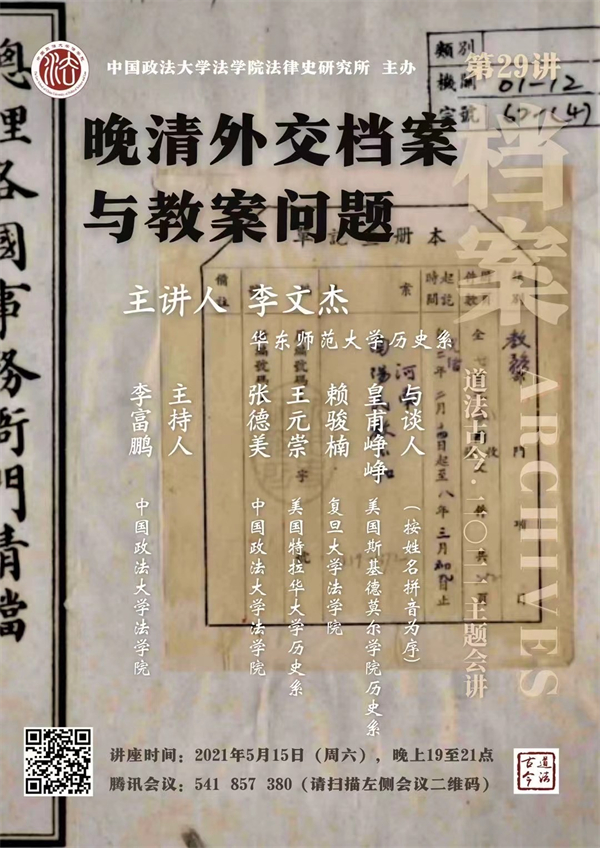 中国政法大学法学院法律史研究所 主办
第29讲
晚清外交档案
与教案问题
档案 ARCHIVES
主讲人 李文杰
华东师范大学历史系
道法古今·二〇二一主题会讲
与谈人 (按姓名拼音为序)
皇甫峥峥 美国斯基德莫尔学院历史系
赖骏楠 复旦大学法学院
王元崇 美国特拉华大学历史系
张德美 中国政法大学法学院
主持人
李富鹏 中国政法大学法学院
讲座时间：2021年5月15日（周六），晚上19至21点
腾讯会议：541 857 380（请扫描左侧会议二维码）
道法古今
總理各國事務衙門清檔
類別
機關 01-12
宗號
登記
册本
備註
教務